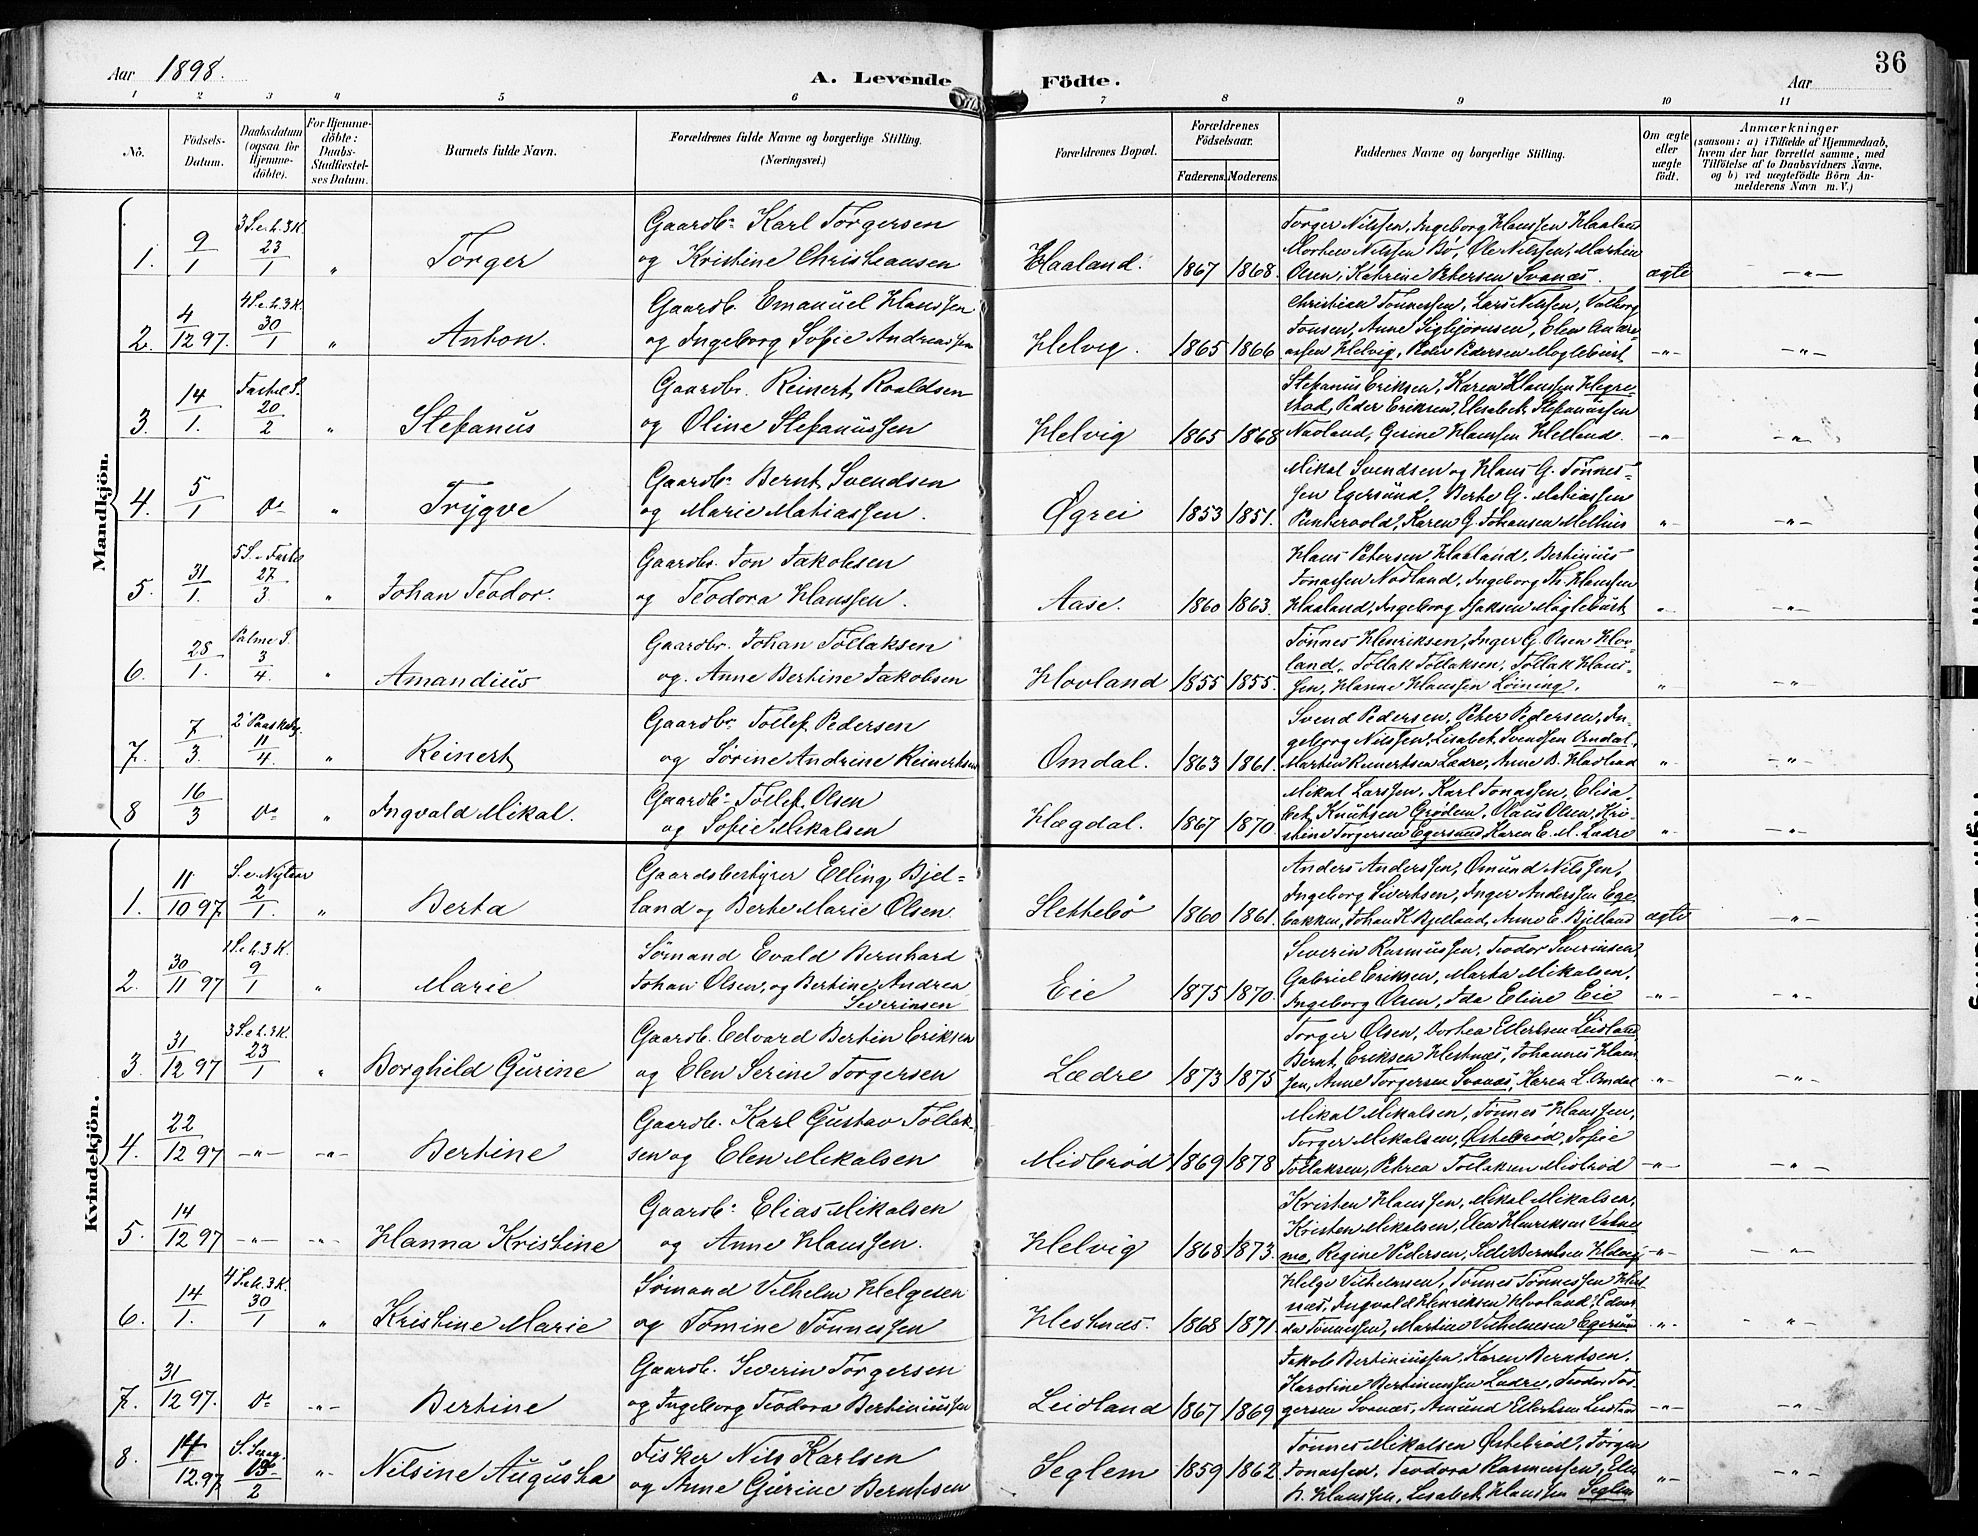 Aar 1898.
A. Levende
Födte.
Aar
36
1 2 3 4 5 6 7 8 9 10 11
No.
Födsels-
Datum.
Daabsdatum
(ogsaa for
Hjemme-
döbte).
For Hjemme-
döbte:
Daabs-
Stadfæstel-
ses Datum.
Barnets fulde Navn.
Forældrenes fulde Navne og borgerlige Stilling.
(Næringsvei.)
Forældrenes Bopæl.
Forældrenes
Födselsaar.
Faderens. Moderens.
Faddernes Navne og borgerlige Stilling.
Om ægte
eller
uægte
födt.
Anmærkninger
(saasom: a) i Tilfælde af Hjemmedaab,
hvem der har forrettet samme, med
Tilföielse af to Daabsvidners Navne,
og b) ved uægtefödte Börn An-
melderens Navn m. V.)
Mandkjön.
1. 9/1 3 S. e. h. 3 K. 23/1 " Torger
Gaardbr. Karl Torgersen
og Kristine Christiansen
Haaland. 1867 1868.
Torger Nilssen, Ingeborg Hanssen Haaland
Morten Nilssen Bø, Ole Nilssen, Martin
Olsen, Katrine Petersen Svanæs. ægte -"-
2. 4/12 97. 4 S. e. h. 3 K. 30/1 " Anton.
Gaardb. Emanuel Hanssen
og Ingeborg Sofie Andreassen
Helvig. 1865 1866
Christian Tønnessen, Lars Nilssen, Valborg
Jonsen, Anne Sigbjørnsen, Elen Andre-
assen Helvig, Peder Pedersen Mogleburst -"- -"-
3. 14/1. Fastel. S. 20/2 " Stefanus
Gaardbr. Reinert Roaldsen
og Oline Stefanussen
Helvig 1865 1868
Stefanus Eriksen, Karen Hanssen Hegre-
stad, Peder Eriksen, Elisabet Stefanussen
Nadland, Gerine Hanssen Helland. -"- -"-
4. 5/1 do " Trygve
Gaardbr. Bernt Svendsen
og Marie Matiassen.
Øgrei 1853 1851.
Mikal Svendsen og Hans G. Tønnes-
sen Egersund, Berte G. Matiassen
Puntervold, Karen G. Johansen Melhus " -"-
5. 31/1. 5 S. i Faste 27/3. " Johan Teodor.
Gaardbr. Jon Jakobsen
og Teodora Hanssen.
Aase. 1860 1863.
Hans Petersen Haaland, Bertinius
Jonassen Nodland, Ingeborg Th. Hanssen
Haaland, Ingeborg Isaksen Mogleburst " -"-
6. 25/1. Palme S. 3/4. " Amandius
Gaardbr. Johan Tollaksen
og. Anne Bertine Jakobsen
Hovland 1855 1855.
Tønnes Henriksen, Inger G. Olsen Hov-
land, Tollak Tollaksen, Tollak Hans-
sen, Hanne Hanssen Løining. " -"-
7. 7/3. 2 Paaskedg. 11/4. " Reinert
Gaardbr. Tollef Pedersen
og Sørine Andrine Reinertsen
Omdal. 1863 1861.
Svend Pedersen, Peter Pedersen, In-
geborg Nilssen, Lisabet Svendsen Omdal,
Martin Reinertsen Lædre, Anne B. Hadland " -"-
8 16/3 do " Ingvald Mikal.
Gaardbr. Tollef Olsen
og Sofie Mikalsen
Hægdal. 1867 1870.
Mikal Larssen, Karl Jonassen, Elisa-
bet Knutsen Grødem, Olaus Olsen, Kri-
stine Torgersen Egersund, Karen E. M. Lædre " -"-
Kvindekjön.
1. 11/10 97 S. e. Nytaar 2/1. " Berta
Gaardsbestyrer Elling Bjel-
land og Berte Marie Olsen
Slettebø 1860 1861.
Anders Anderssen, Ømund Nilssen,
Ingeborg Sivertsen, Inger Anderssen Ege-
bakken, Johan K Bjelland, Anne E. Bjelland ægte -"-
2. 30/11 97 1 S. e. h. 3 K. 9/1 " Marie
Sømand Evald Bernhard
Johan Olsen, og Bertine Andrea
Severinsen
Eie 1875 1870.
Severin Rasmussen, Teodor Severinsen
Gabriel Eriksen, Marta Mikalsen,
Ingeborg Olsen, Ida Eline Eie -"- -"-
3. 31/12 97 3 S. e. h. 3 K. 23/1 " Borghild Gurine
Gaardb. Edvard Bertin Eriksen
og Elen Serine Torgersen
Lædre 1873 1875
Torger Olsen, Dorhea Ellertsen Leidland
Bernt Eriksen Hestnæs, Johannes Hans
sen, Anne Torgersen Svanæs, Karen L. Omdal " -"-
4. 22/12 97 -"- -"- Bertine
Gaardb. Karl Gustav Tollak-
sen og Elen Mikalsen
Midbrød 1869 1878
Mikal Mikalsen, Tønnes Hanssen,
Torger Mikalsen, Østebrød, Sofie
Tollaksen, Petrea Tollaksen Midbrød -"- -"-
5. 14/12 97 -"- -"- Hanna Kristine
Gaardbr. Elias Mikalsen
og Anne Hanssen.
Helvig 1868 1873.
Kristen Hanssen, Mikal Mikalsen,
Kristen Mikalsen, Elen Henriksen Vatne-
mo, Regine Pedersen, Sille Berntsen Helvig -"- -"-
6. 14/1. 4 S. e. h. 3 K. 30/1 " Kristine Marie
Sømand Vilhelm Helgesen
og Tomine Tønnessen
Hestnæs. 1868 1871.
Helge Vilhelmsen, Tønnes Tønnessen Hest-
næs, Ingvald Henriksen Hovland, Edvar-
da Tønnessen, Martine Vilhelmsen Egersund -"- -"-
7. 31/12 97. do -"- Bertine
Gaardb. Severin Torgersen
og Ingeborg Teodora Bertiniussen
Leidland 1867 1869
Jakob Bertiniussen, Karen Berntsen.
Karoline Bertiniussen Lædre, Teodor Tor-
gersen Svanæs, Amund Ellertsen Leidland -"- -"-
8. 14/12 97 S. Sexag. 13/2 -"- Nilsine Augusta
Fisker Nils Karlsen
og Anne Gurine Berntsen
Seglem 1859 1862
Tønnes Mikalsen Østebrød, Jørgen
Jonassen, Teodora Rasmussen, Elen
B. Hanssen, Lisabet Hanssen Seglem -"- -"-